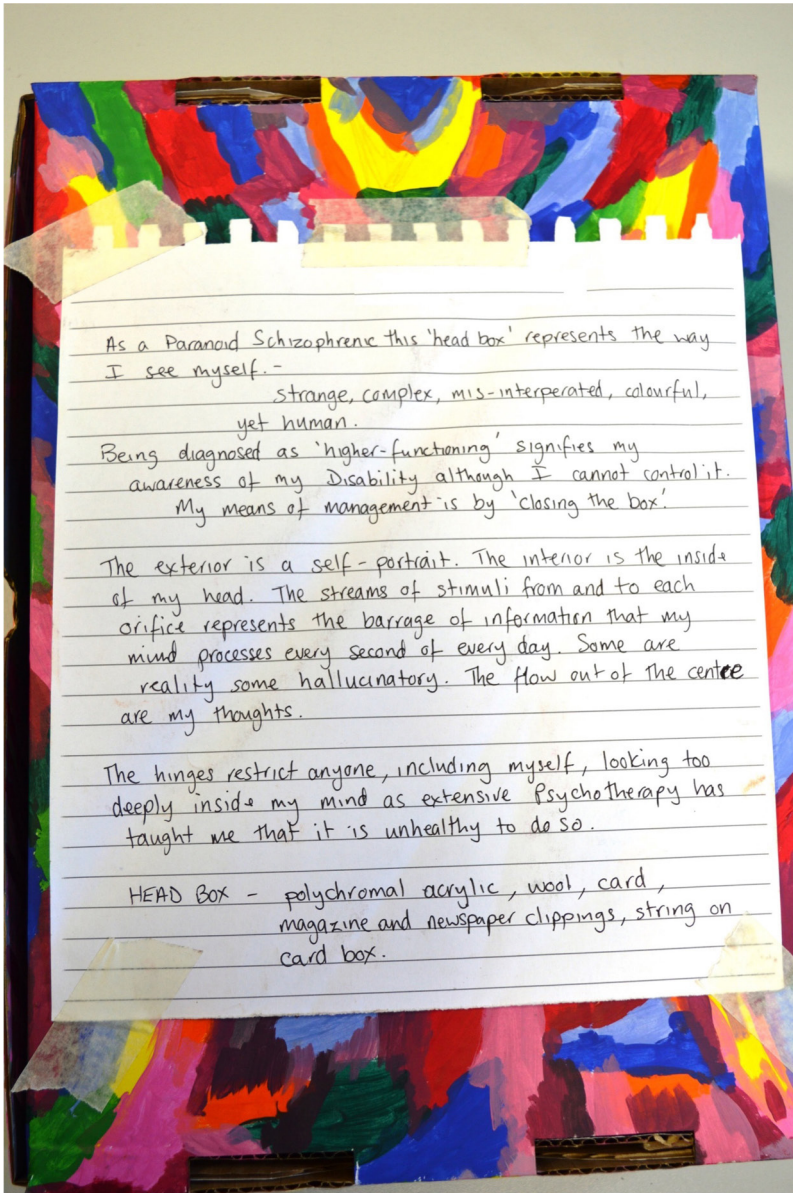 As a Paranoid Schizophrenic this 'head box' represents the way
I see myself. -
strange, complex, mis-interperated, colourful,
yet human.
Being diagnosed as 'higher-functioning' signifies my
awareness of my Disability although I cannot control it.
My means of management is by 'closing the box'.
The exterior is a self-portrait. The interior is the inside
of my head. The streams of stimuli from and to each
orifice represents the barrage of information that my
mind processes every second of every day. Some are
reality some hallucinatory. The flow out of the centre
are my thoughts.
The hinges restrict anyone, including myself, looking too
deeply inside my mind as extensive Psychotherapy has
taught me that it is unhealthy to do so.
HEAD BOX - polychromal acrylic, wool, card,
magazine and newspaper clippings, string on
card box.